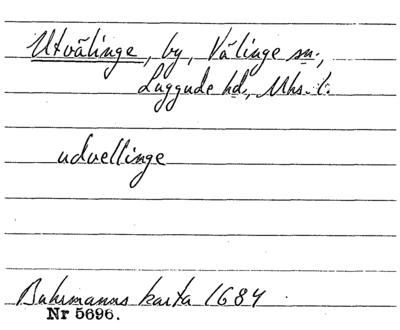 Utvälinge, by, Välinge sn.,
Luggude hd, Mhs. l.
udvellinge
Buhrmanns karta 1684
Nr 5696.